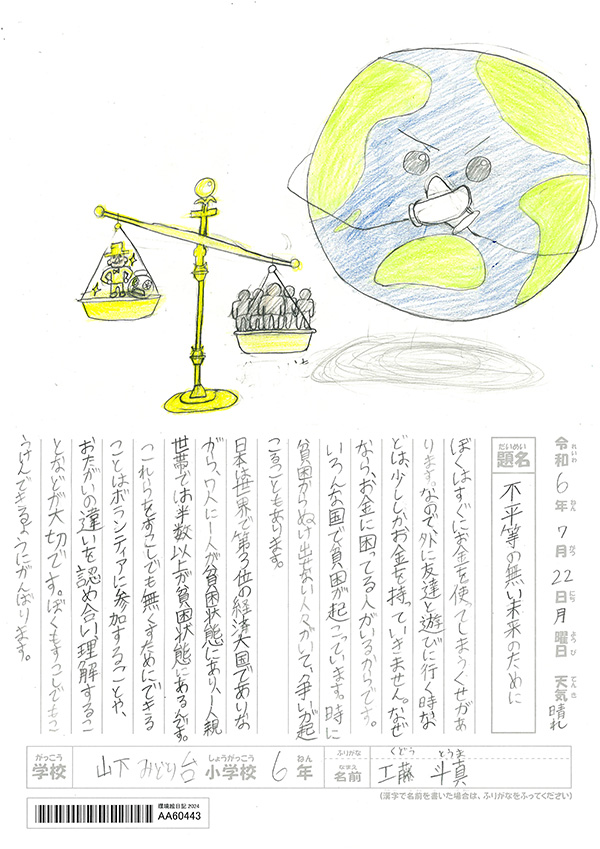 令和6年7月22日月曜日 天気 晴れ
れいわ ねん がつ にち ようび てんき
だいめい
題名 不平等の無い未来のために
ぼくはすぐにお金を使てしまうくせがあ
ります。なので外に友達と遊びに行く時な
どは、少ししかお金を持っていきません。なぜ
なら、お金に困ってる人がいるからです。
いろんな国で貧困が起こっています。時に
貧困からぬけ出せない人々がいて、争いが起
こることもあります。
日本は世界で第3位の経済大国でありな
がら、7人に一人が貧困状態にあり、一人親
世帯では半数以上が貧困状態にあるんです。
これらをすこしでも無くすためにできる
ことはボランティアに参加することや、
おたがいの違いを認め合い理解するこ
となどが大切です。ぼくもすこしでもこ
うけんできるようにがんばります。
がっこう しょうがっこう ねん ふりがな くどう とうま
学校 山下みどり台 小学校 6年 なまえ 名前 工藤 斗真
(漢字で名前を書いた場合は、ふりがなをふってください)
環境絵日記 2024
AA60443